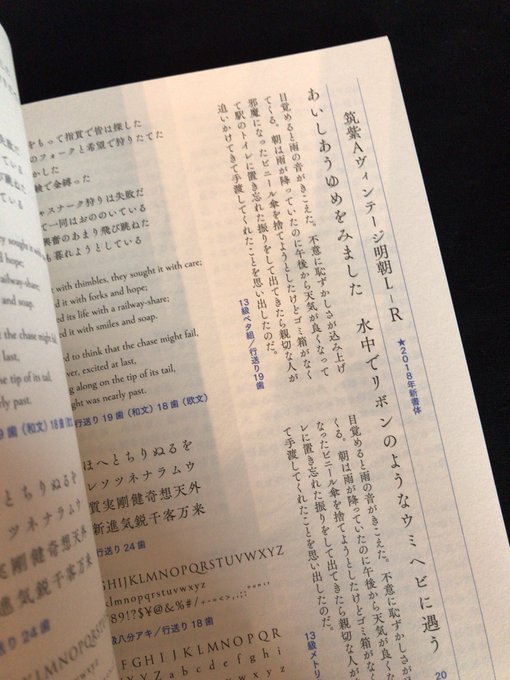 筑紫Aヴィンテージ明朝L-R
★2018年新書体
あいしあうゆめをみました 水中でリボンのようなウミヘビに遭う
目覚めると雨の音がきこえた。不意に恥ずかしさが込み上げ
てくる。朝は雨が降っていたのに午後から天気が良くなって
邪魔になったビニール傘を捨てようとしたけどゴミ箱がなく
て駅のトイレに置き忘れた振りをして出てきたら親切な人が
追いかけてきて手渡してくれたことを思い出したのだ。
13級ベタ組/行送り19歯
目覚めると雨の音がきこえた。不意に恥ずかしさが
くる。朝は雨が降っていたのに午後から天気が良く
なったビニール傘を捨てようとしたけどゴミ箱がなく
レに置き忘れた振りをして出てきたら親切な人が
て手渡してくれたことを思い出したのだ。
13級メトリ
20
をもって指貫で皆は探した
のフォークと希望で狩りたてた
かした
験で金縛った
ャスナーク狩りは失敗だ
て一同はおののいている
興奮のあまり飛び跳ねた
も暮れようとしている
t with thimbles, they sought it with care;
d it with forks and hope;
ed its life with a railway-share;
d it with smiles and soap.
ed to think that the chase might fail,
ver, excited at last,
ng along on the tip of its tail,
ght was nearly past.
19歯(和文)18歯(欧文)
ほへとちりぬるを
レソツネナラムウ
質実剛健奇想天外
新進気鋭千客万来
行送り24歯
GHIJKLMNOPQRSTUVWXYZ
hijklmnopqrstuvwxyz
級八分アキ/行送り18歯
FGHIJKLMNOPQR
YZabcdefgh
they sought it with
nd hope;
railway-share;
and soap.
he chase might
ast,
tip of its tail,
past.